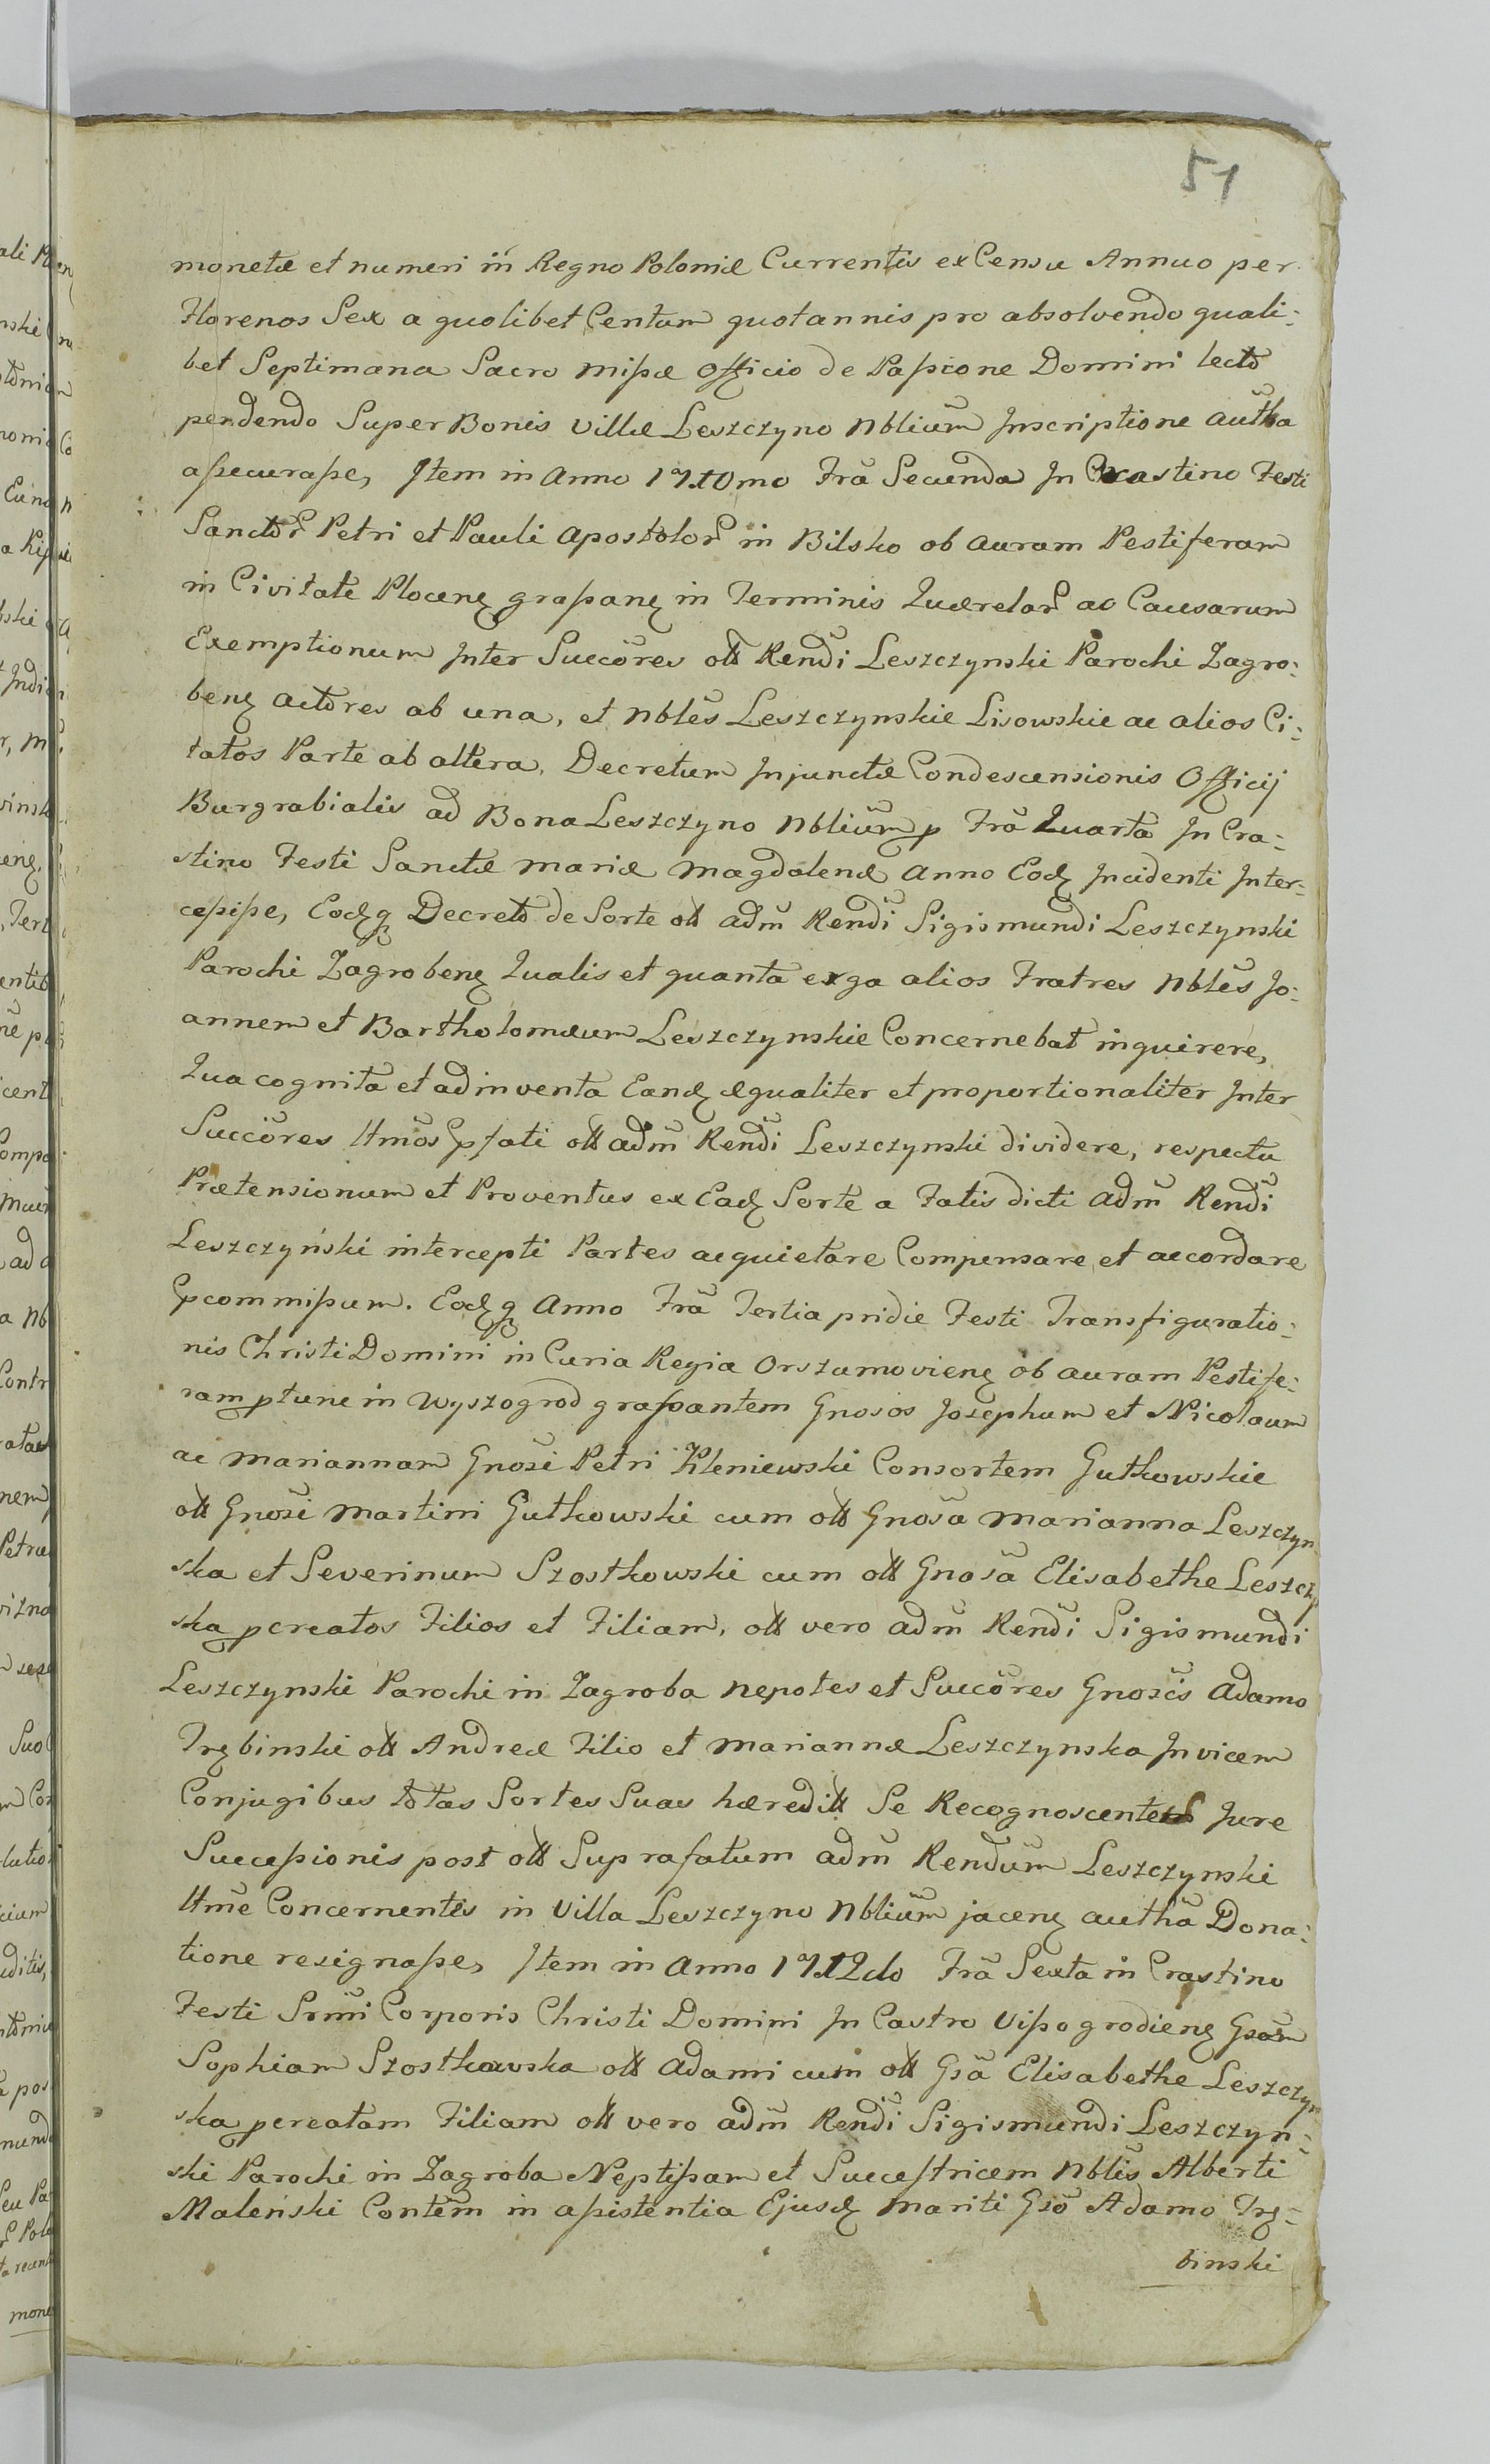 51
monetæ et numeri in Regno Poloniæ Currentis ex Censu Annuo per
Florenos Sex a quolibet Centum quotannis pro absolvendo quali:
bet Septimana Sacro Missæ Officio de Passione Domini lecto
pendendo Super Bonis Villæ Leszczyno Nblium Inscriptione autha
assecurasse, Item in Anno 1710mo Fra Secunda In Crastino Festi
Sanctor Petri et Pauli Apostolor in Bilsko ob auram Pestiferam
in Civitate Plocenȝ grassanȝ in Terminis Quærelar ac Causarum
Exemptionum Inter Succores olt Rendi Leszczynski Parochi Zagro:
benȝ actores ab una, et Nbles Leszczynskie Lisowskie ac alios Ci:
tatos Parte ab altera, Decretum Injunctæ Condescensionis Officij
Burgrabialis ad Bona Leszczyno Nblium p Fra Quarta In Cra:
stino Festi Sanctæ Mariæ Magdalenæ Anno Eodȝ Incidenti Inter:
cessisse, Eodȝq Decreto de Sorte olt Adm Rendi Sigismundi Leszczynski
Parochi Zagrobenȝ Qualis et quanta erga alios Fratres Nbles Jo:
annem et Bartholomæum Leszczynskie Concernebat inquirere,
Qua cognita et adinventa Eandȝ æqualiter et proportionaliter Inter
Succores Ittmos Pfati olt adm Rendi Leszczynski dividere, respectu
Prætensionum et Proventus ex Eadȝ Sorte a Fatis dicti Adm Rendi
Leszczyński intercepti Partes acquietare Compensare et accordare
Pcommissum. Eodȝq Anno Fra Tertia pridie Festi Transfiguratio:
nis Christi Domini in Curia Regia Orszamovienȝ ob auram Pestife:
ram ptunc in Wyszogrod grassantem Gnosos Josephum et Nicolaum
ac Mariannam Gnosi Petri Kleniewski Consortem Gutkowskie
olt Gnosi Martini Gutkowski cum olt Gnosa Marianna Leszczyn
ska et Severinum Szostkowski cum olt Gnosa Elisabethe Leszczy
ska pcreatos Filios et Filiam, olt vero adm Rendi Sigismundi
Leszczynski Parochi in Zagroba Nepotes et Succores Gnosis Adamo
Trȝbinski olt Andreæ Filio et Mariannæ Leszczynska Invicem
Conjugibus totas Sortes Suas hæredit Se Recognoscentes Jure
Successionis post olt Suprafatum adm Rendum Leszczynski
Ittme Concernentes in Villa Leszczyno Nblium jacenȝ autha Dona:
tione resignasse, Item in Anno 1712do Fra Sexta in Crastino
Festi Srmi Corporis Christi Domini In Castro Vissogrodienȝ Gsam
Sophiam Szostkowska olt Adami cum olt Gsa Elisabethe Leszczyn
ska pcreatam Filiam olt vero adm Rendi Sigismundi Leszczyn:
ski Parochi in Zagroba Neptissam et Successtricem Nblis Alberti
Maleński Contem in assistentia Ejusdȝ Mariti Gso Adamo Trȝ:
binski